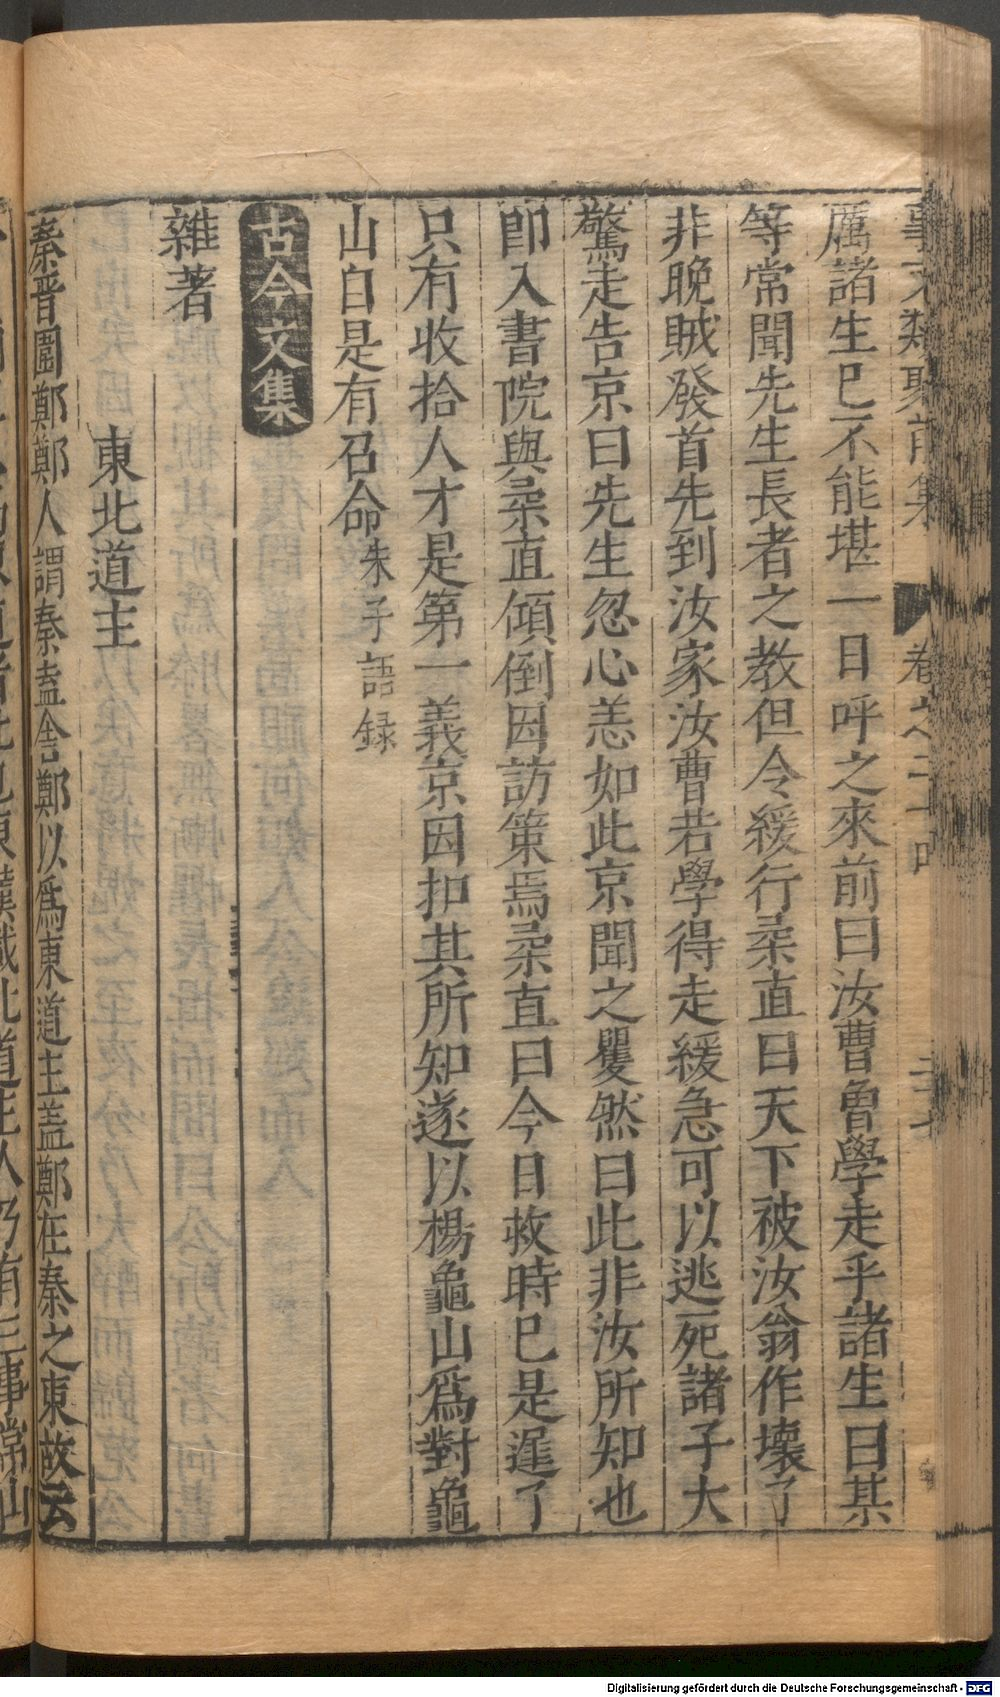 事文類聚前集 卷之二十四
厲諸生已不能堪一日呼之來前曰汝曹曾學走乎諸生曰某
等常聞先生長者之教但令緩行柔直曰天下被汝翁作壞了
非晚賊發首先到汝家汝曹若學得走緩急可以逃死諸子大
驚走告京曰先生忽心恙如此京聞之矍然曰此非汝所知也
即入書院與柔直傾倒因訪策焉柔直曰今日救時已是遲了
只有收拾人才是第一義京因扣其所知遂以楊龜山爲對龜
山自是有召命朱子語録
古今文集
雜著
東北道主
秦晋圍鄭鄭人謂秦盍舍鄭以爲東道主蓋鄭在秦之東故云
Digitalisierung gefördert durch die Deutsche Forschungsgemeinschaft - DFG